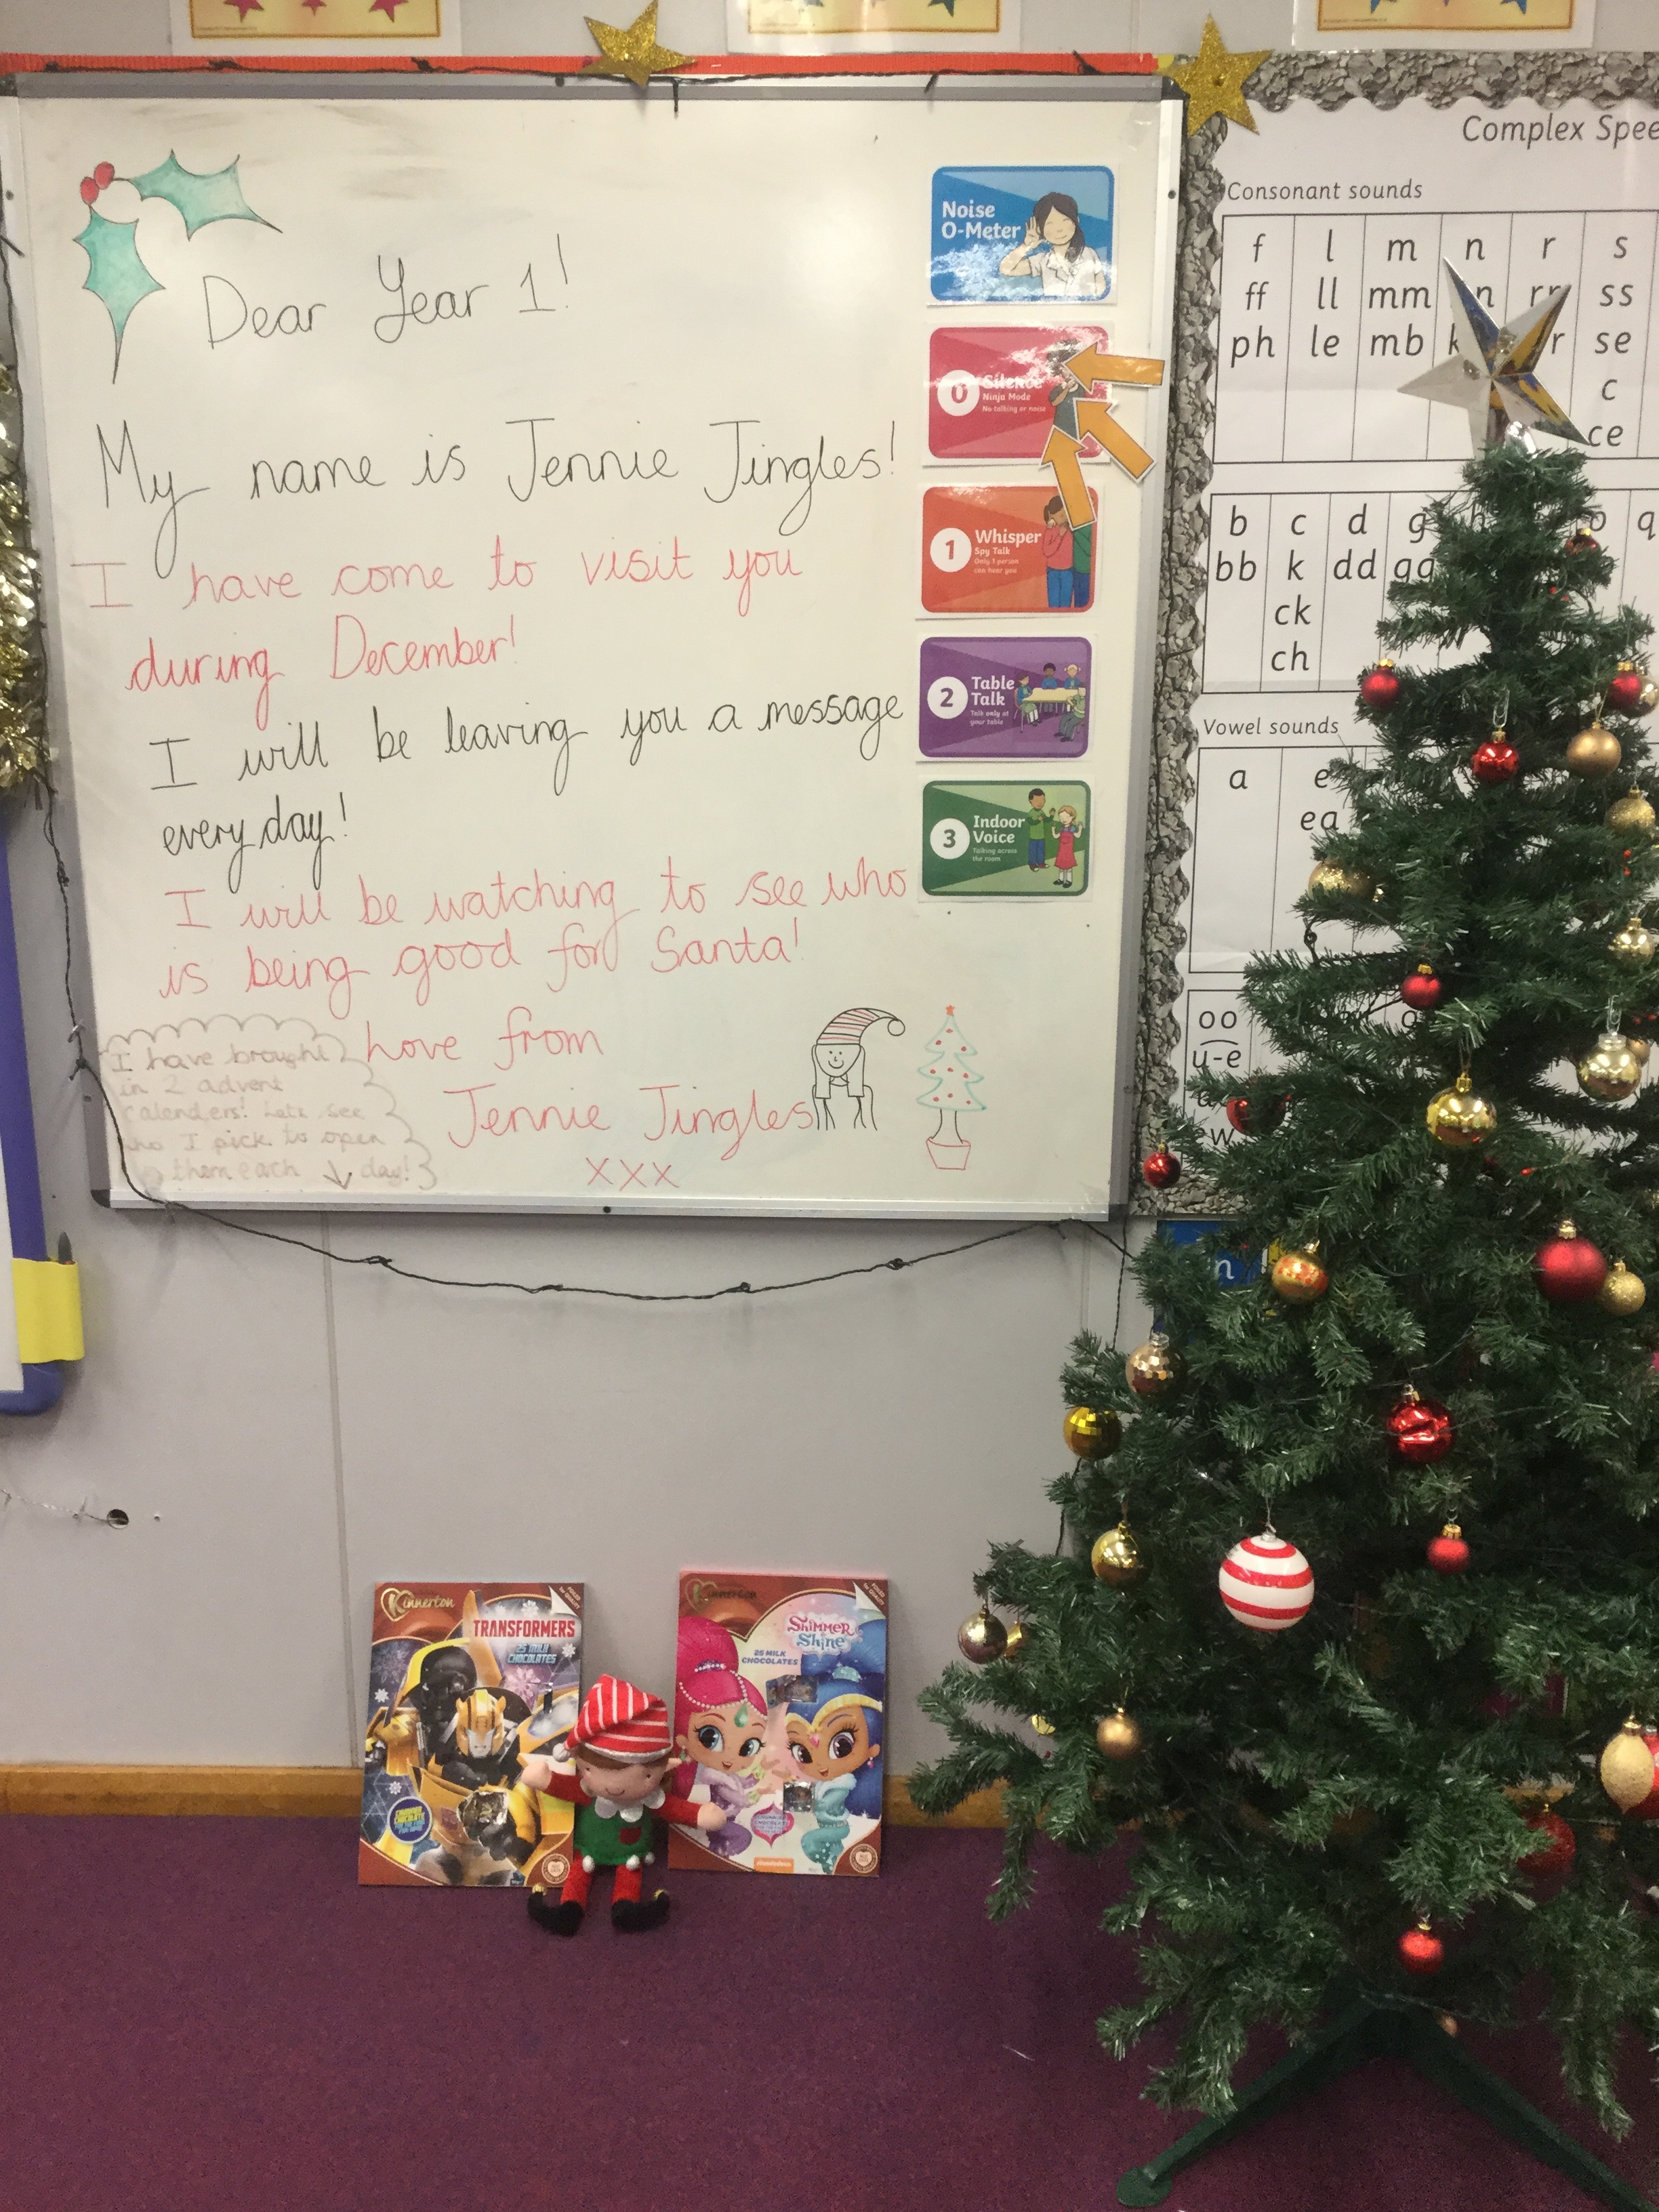 Dear Year 1!
My name is Jennie Jingles!
I have come to visit you
during December!
I will be leaving you a message
every day!
I will be watching to see who
is being good for Santa!
Love from
Jennie Jingles
xxx
I have brought
in 2 advent
calenders! Lets see
who I pick to open
them each day!
Noise
O-Meter
0
Silence
Ninja Mode
No talking or noise
1
Whisper
Spy Talk
Only 1 person
can hear you
2
Table
Talk
Talk only at
your table
3
Indoor
Voice
Talking across
the room
Complex Spee
Consonant sounds
f l m n r s
ff ll mm rr ss
ph le mb se
c
ce
b c d g q
bb k dd gg
ck
ch
Vowel sounds
a e
ea
oo
u-e
Kinnerton
TRANSFORMERS
25 MILK
CHOCOLATES
Kinnerton
Shimmer
Shine
25 MILK
CHOCOLATES
nickelodeon